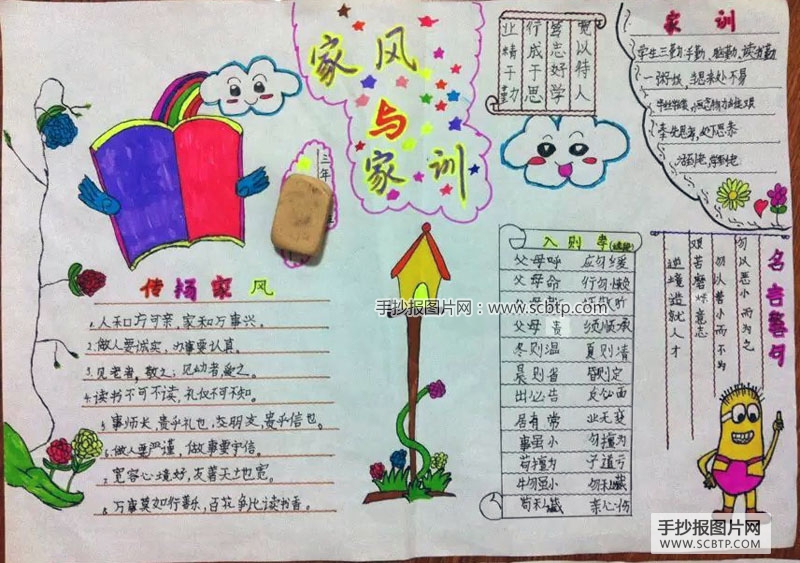 家风
与
家训
三年
业精于勤
行成于思
笃忠好学
宽以待人
家训
学生三勤：手勤、脑勤、读者勤
名言警句
勿以恶小而为之
勿以善小而不为
艰苦磨炼意志
逆境造就人才
传扬家风
1.人和方可亲，家和万事兴。
2.做人要诚实，办事要认真。
3.见老者，敬之；见幼者，爱之。
4.读书不可不读，礼仪不可不知。
5.事师长，贵乎礼也，交朋友，贵乎信也。
6.做人要严谨，做事要守信。
7.宽容心境好，友善天地宽。
8.万事莫如行善乐，百花争比读书香。
入则孝
父母呼 应勿缓
父母命 行勿懒
父母责 须顺承
冬则温 夏则凊
晨则省 昏则定
出必告 反必面
居有常 业无变
事虽小 勿擅为
苟擅为 子道亏
物虽小 勿私藏
苟私藏 亲心伤
手抄报图片网：www.scbtp.com
手抄报图片网
WWW.SCBTP.COM